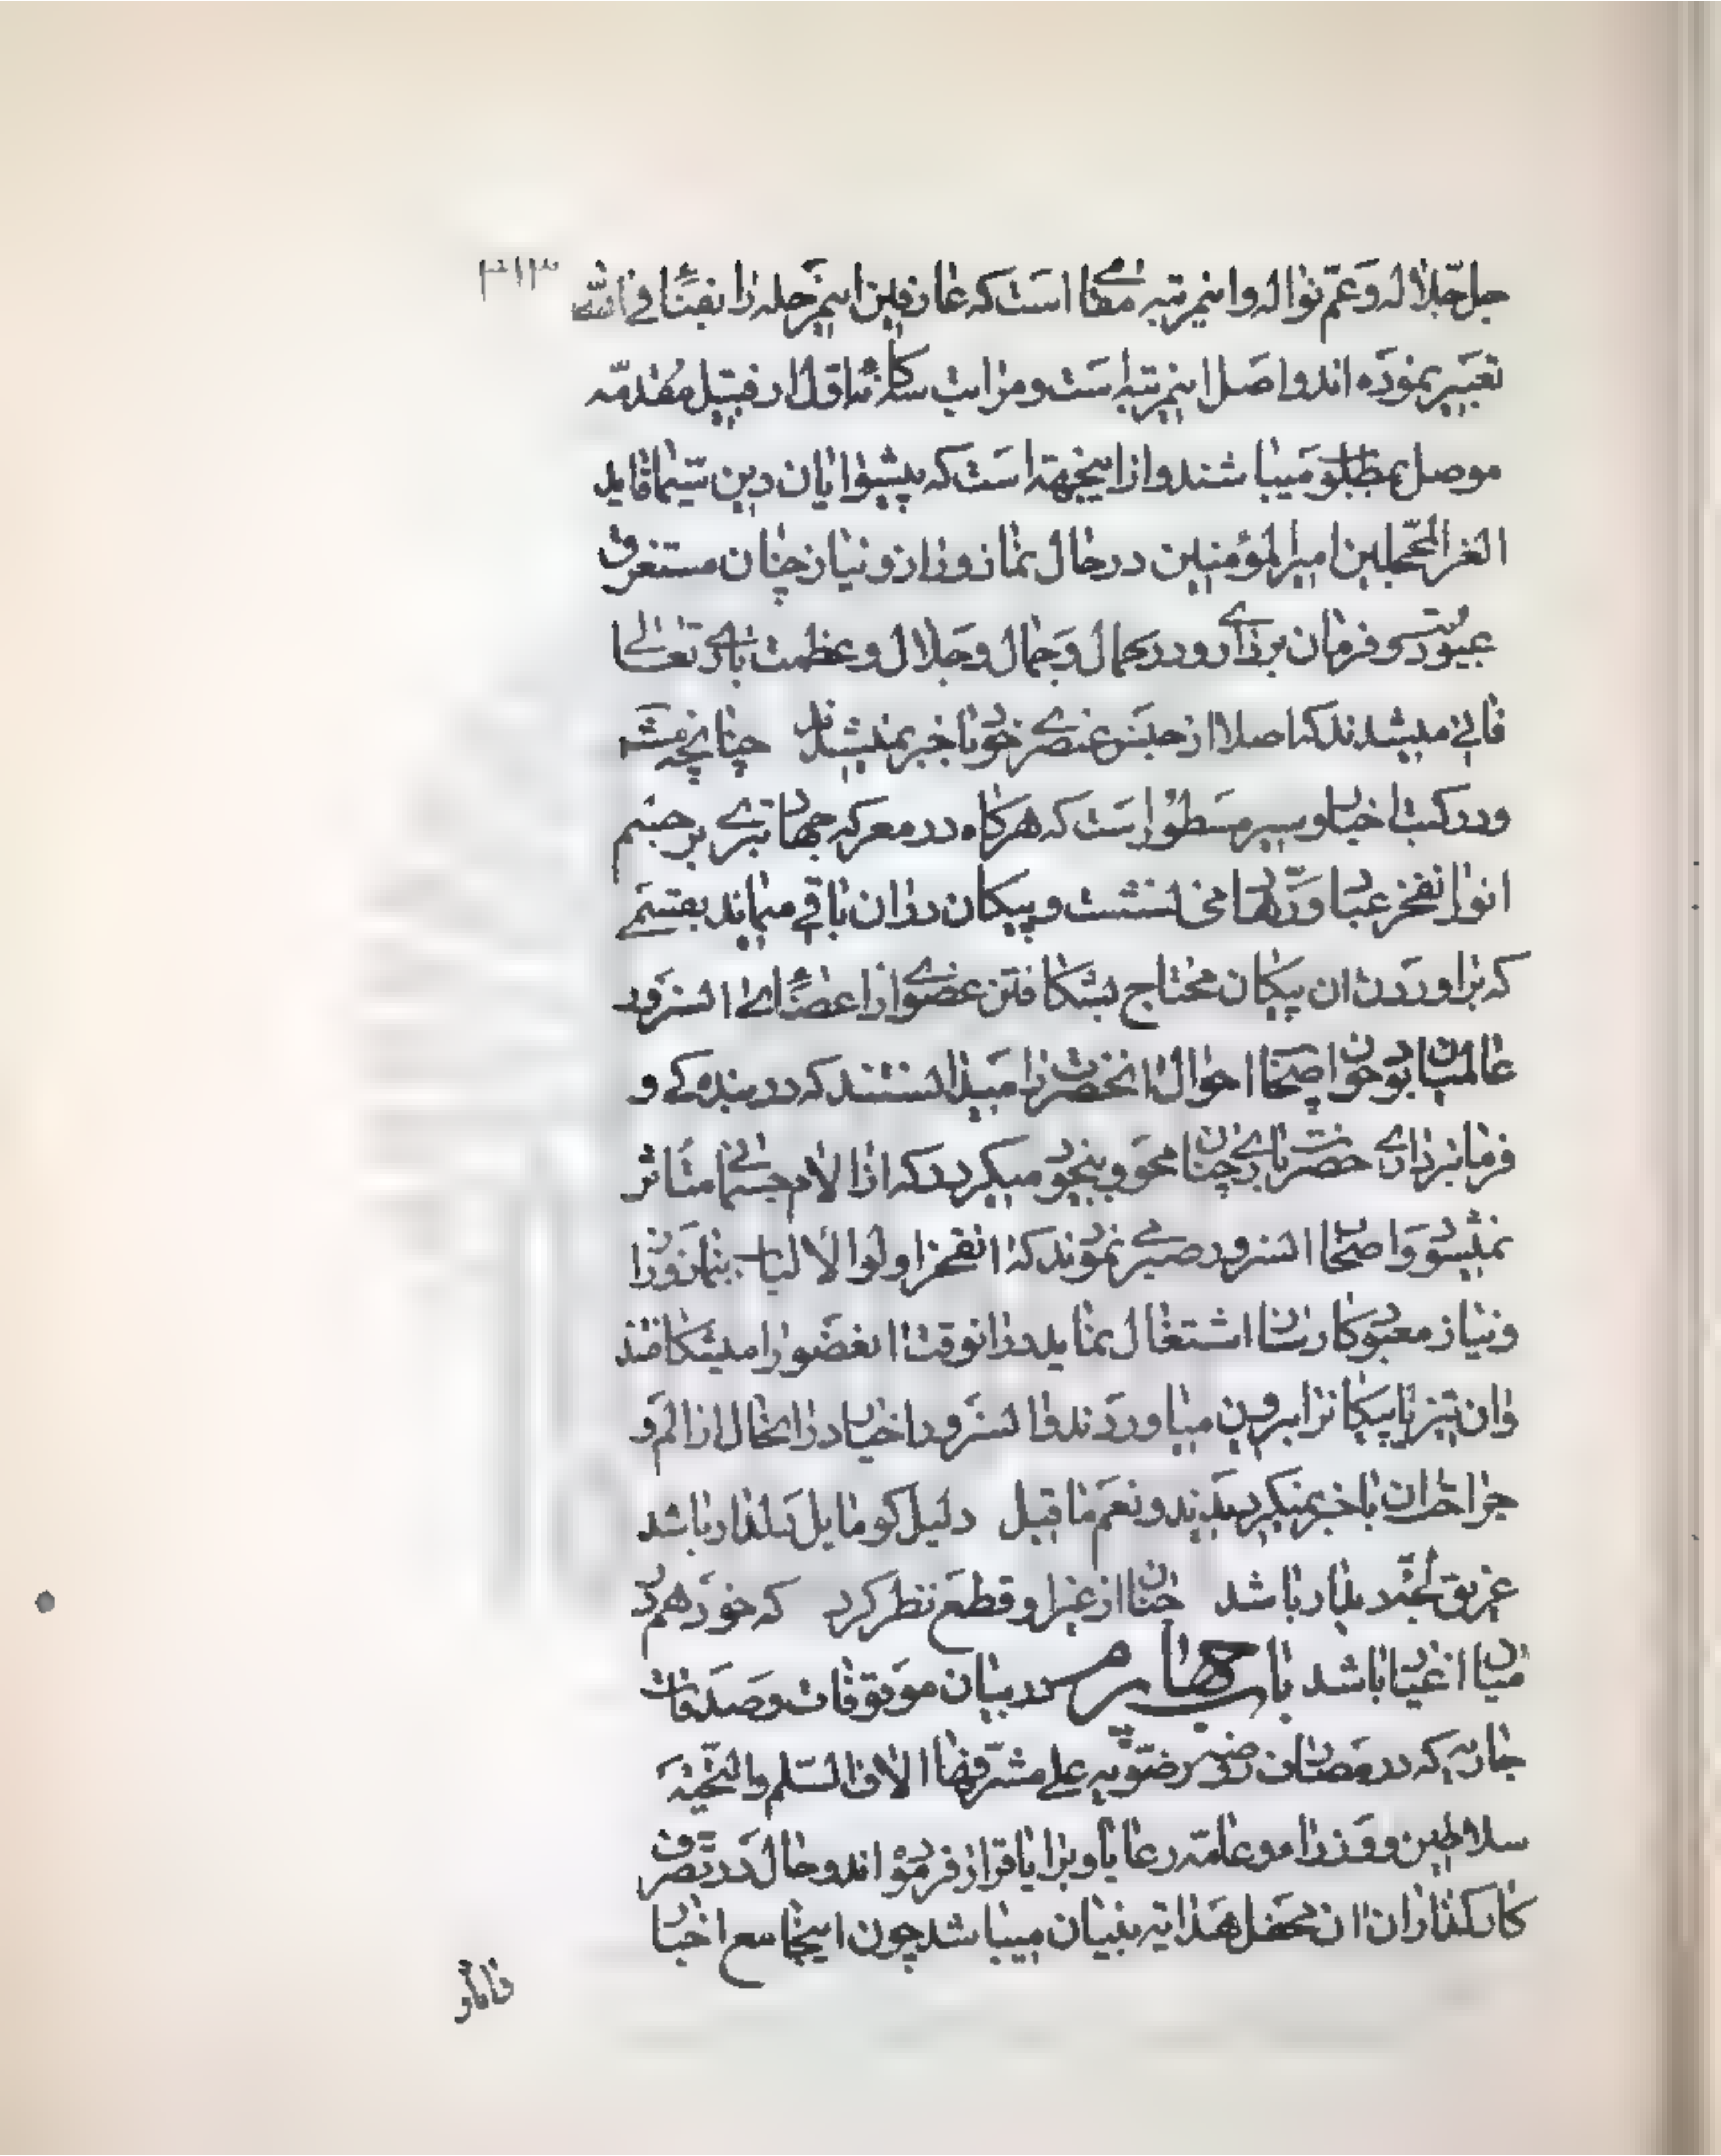 ۳۱۳
جل جلاله و عم نواله و اینمرتبه مقامی است که عارفین اینمرحله را بفنای فی الله
تعبیر نموده اند و اصل اینمرتبه است و مراتب سه کانه اول از قبیل مقدمه
موصل بمطلوب میباشند و از اینجهة است که پیشوایان دین سیما قاید
الغر المحجلین امیرالمؤمنین در حال نماز و راز و نیاز چنان مستغرق
عبودیت و فرمان برداری و در کمال و جمال و جلال و عظمت باری تعالی
فانی میشدند که اصلا از جسد عنصری خود با خبر نمیشدند چنانچه
و در کتب اخبار و سیر مسطور است که هرکاه در معرکه جهاد تیری بر جسم
انور انفخر عباد و زهاد می نشست و پیکان در ان باقی میماند بقسمی
که براوردن ان پیکان محتاج بشکافتن عضوی از اعضای انسرور
عالمیان بود چون اصحاب احوال انحضرت را میدانستند که در بنده کی و
فرمانبرداری حضرت باری چنان محو و بیخود میکردد که از الام جسمانی متاثر
نمیشود و اصحاب انسرور صبر می نمودند که انفخر اولوا الالباب بنماز و راز
و نیاز معبود کارساز اشتغال نماید در انوقت انعضو را میشکافتند
و ان تیر با پیکانرا بیرون میاوردند و انسرور اخیار در انحال از الم و
جراحت ان با خبر نمیکردیدند و نعم ما قیل دلیل کو مایل دلدار باشد
غریق لجه دیدار باشد چنان از غیر او قطع نظر کرد که خود هم در
میان اغیار باشد باب چهارم در بیان موقوفات و صدقات
جاریه که در مصارف روضه رضویه علی مشرفها الاف السلم و التحیة
سلاطین و وزرا و عامه رعایا و برایا قرار فرموده اند و حال در تصرف
کارکذاران ان محفل هدایه بنیان میباشد چون اینجامع اخبار